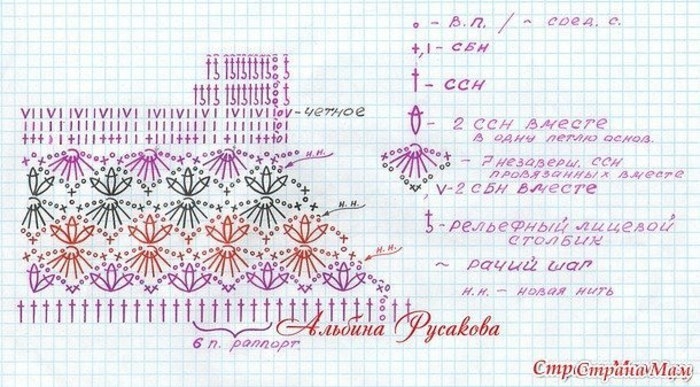 ∘ - В.П. / ⌢ соед. с.
+, ı - СБН
† - ССН
- 2 ССН вместе
в одну петлю основ.
- 7 незаверш. ССН
провязанных вместе
v - 2 СБН вместе
- рельефный лицевой
столбик
~ рачий шаг
н.н. - новая нить
v - четное
н.н.
н.н.
н.н.
6 п. раппорт
Альбина Русакова
Стр Страна Мам